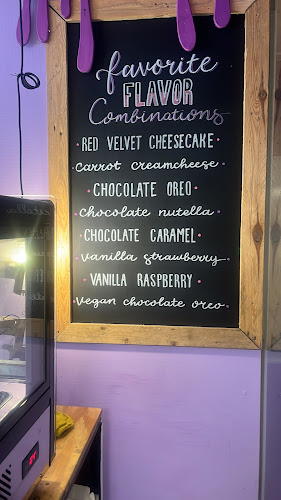 favorite
FLAVOR
Combinations
• RED VELVET CHEESECAKE •
• carrot creamcheese •
• CHOCOLATE OREO •
• chocolate nutella •
• CHOCOLATE CARAMEL •
• vanilla strawberry •
• VANILLA RASPBERRY •
• vegan chocolate oreo •